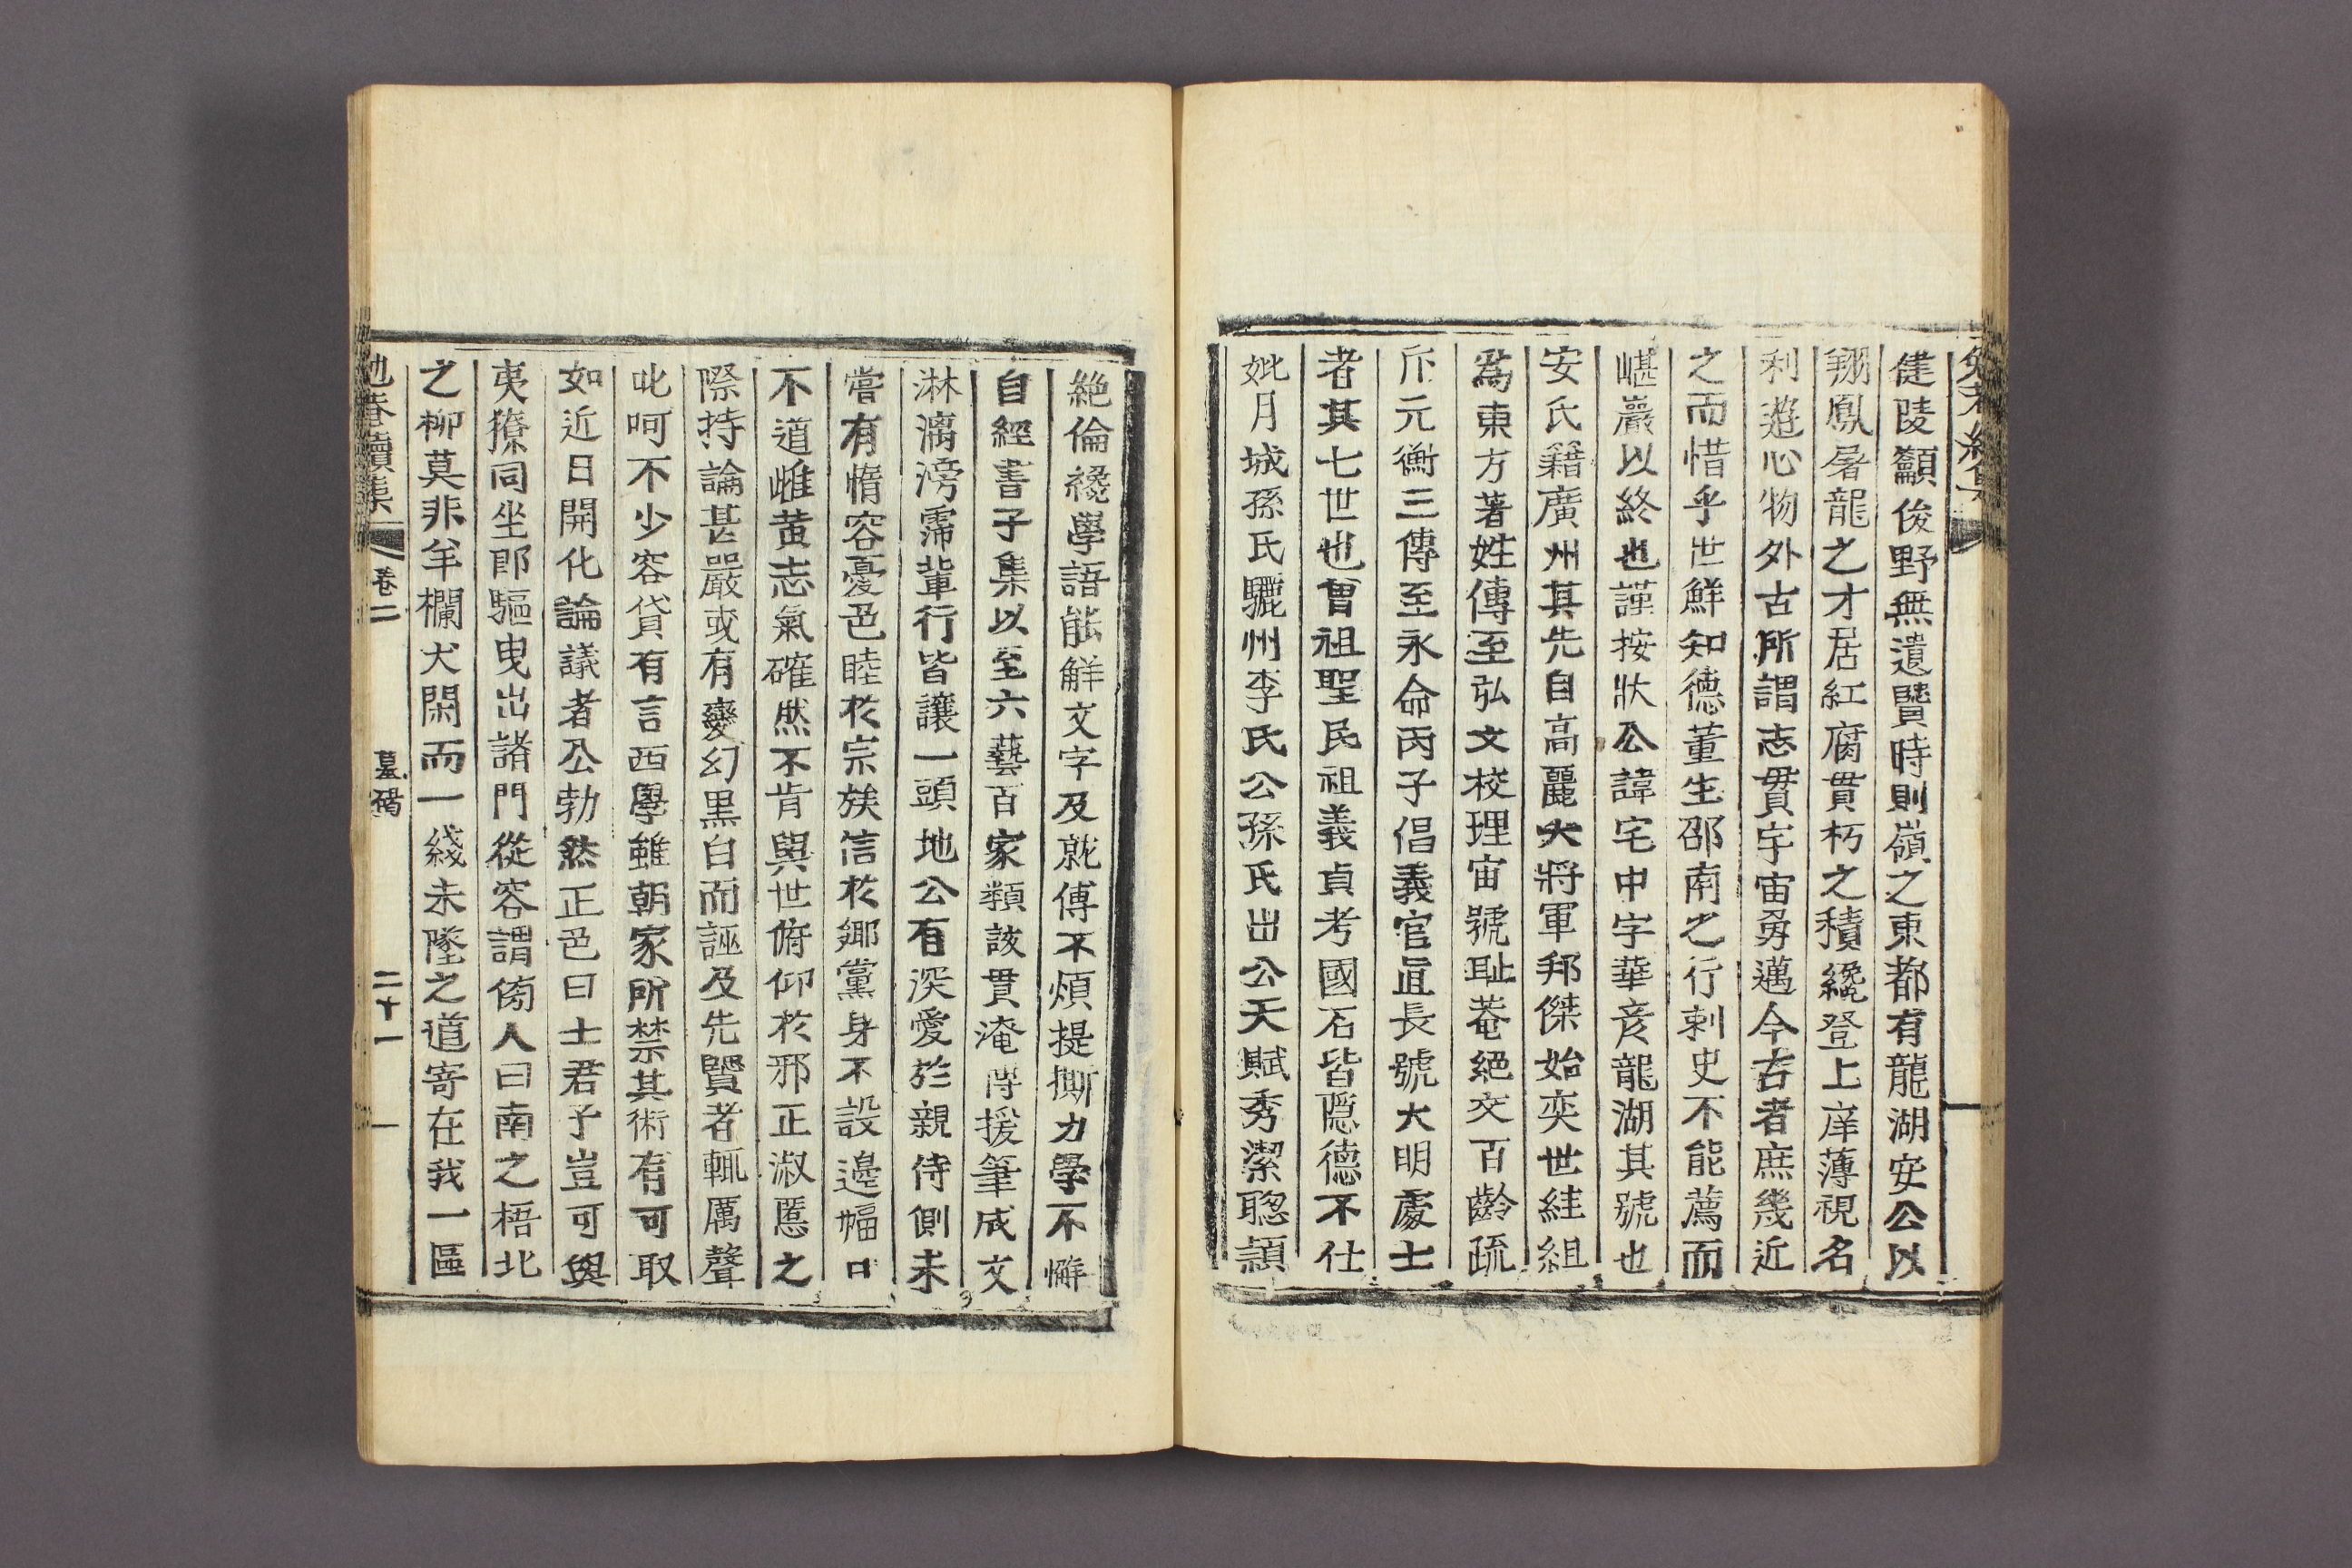 健陵籲俊野無遺賢時則嶺之東都有龍湖安公以
翔鳳屠龍之才居紅腐貫朽之積纔登上庠薄視名
利遊心物外古所謂志貫宇宙勇邁今古者庶幾近
之而惜乎世鮮知德董生邵南之行刺史不能薦而
嵁巖以終也謹按狀公諱宅中字華彦龍湖其號也
安氏籍廣州其先自高麗大將軍邦傑始奕世絓組
爲東方著姓傳至弘文校理宙號耻菴絕交百齡疏
斥元衡三傳至永命丙子倡義官直長號大明處士
者其七世也曾祖聖民祖義貞考國石皆隱德不仕
妣月城孫氏驪州李氏公孫氏出公天賦秀潔聰穎
絶倫纔學語能觧文字及就傅不煩提撕力學不懈
自經書子集以至六藝百家類該貫淹博援筆成文
淋漓滂霈輩行皆讓一頭地公有深愛於親侍側未
嘗有惰容憂色睦於宗族信於鄉黨身不設邊幅口
不道雌黃志氣確然不肯與世俯仰於邪正淑慝之
際持論甚嚴或有變幻黑白而誣及先賢者輒厲聲
叱呵不少容貸有言西學雖朝家所禁其術有可取
如近日開化論議者公勃然正色曰士君子豈可與
夷獠同坐卽驅曳出諸門從容謂傍人曰南之梧北
之柳莫非羊欄犬閑而一綫未墜之道寄在我一區
卷二
墓碣
二十一